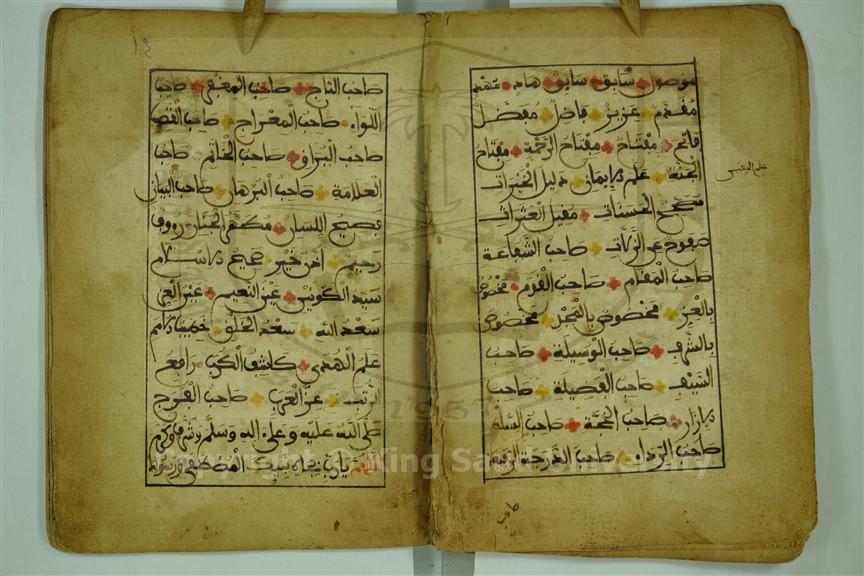 موصول سابق سايق هاد مهد
مقدم عزيز فاضل مفضل
فاتح مفتاح مفتاح الرحمة مفتاح
الجنة علم الايمان دليل الخيرات
علم اليقين
مصحح الحسنات مقيل العثرات
صفوح عن الزلات صاحب الشفاعة
صاحب المقام صاحب القدم مخصوص
بالعز مخصوص بالمجد مخصوص
بالشرف صاحب الوسيلة صاحب
السيف صاحب الفضيلة صاحب
الازار صاحب الحجة صاحب
صاحب الرداء صاحب الدرجة الرفيعة
صاحب
١٤
صاحب التاج صاحب المغفر صاحب
اللواء صاحب المعراج صاحب القضيب
صاحب البراق صاحب الخاتم صاحب
العلامة صاحب البرهان صاحب البيان
فصيح اللسان مطهر الجنان رءوف
رحيم اذن خير صحيح الاسلام
سيد الكونين عين النعيم عين الغر
سعد الله سعد الخلق خطيب الامم
علم الهدى كاشف الكرب رافع
الرتب عز العرب صاحب الفرج
صلى الله عليه وعلى اله وسلم وشرف وكرم
اللهم يا رب بجاه نبيك المصطفى ورسولك
Copyright © King Saud University
1957